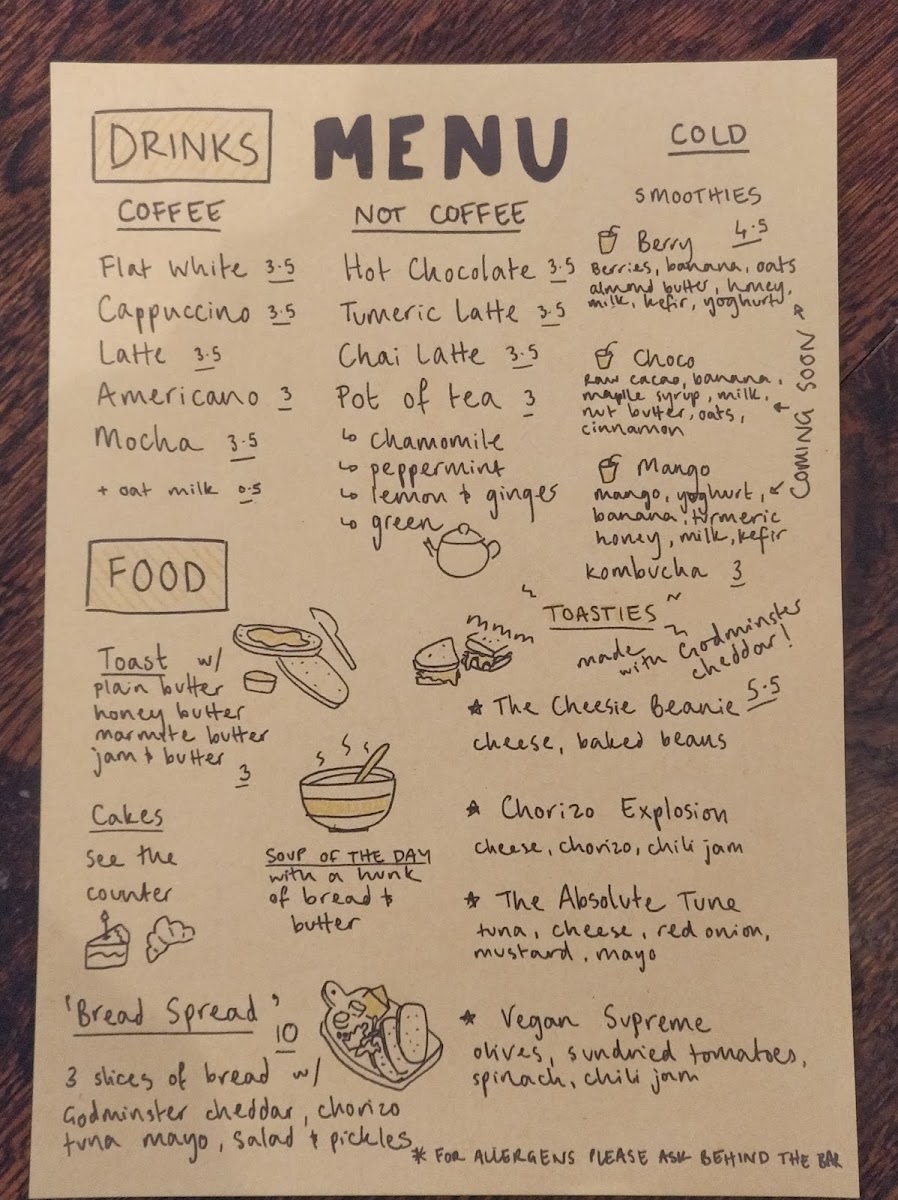 MENU
DRINKS
COFFEE
Flat white 3.5
Cappuccino 3.5
Latte 3.5
Americano 3
Mocha 3.5
+ oat milk 0.5
NOT COFFEE
Hot Chocolate 3.5
Tumeric Latte 3.5
Chai Latte 3.5
Pot of tea 3
↳ chamomile
↳ peppermint
↳ lemon & ginger
↳ green
COLD
SMOOTHIES
Berry 4.5
Berries, banana, oats
almond butter, honey,
milk, kefir, yoghurt
Choco
Raw cacao, banana,
maplle syrup, milk,
nut butter, oats,
cinnamon
Mango
mango, yoghurt,
banana, turmeric
honey, milk, kefir
COMING SOON
kombucha 3
FOOD
Toast w/
plain butter
honey butter
marmite butter
jam & butter
3
Cakes
see the
counter
SOUP OF THE DAY
with a hunk
of bread &
butter
'Bread Spread'
10
3 slices of bread w/
Godminster cheddar, chorizo
tuna mayo, salad & pickles
TOASTIES
made
with Godminster
cheddar!
★ The Cheesie Beanie 5.5
cheese, baked beans
★ Chorizo Explosion
cheese, chorizo, chili jam
★ The Absolute Tune
tuna, cheese, red onion,
mustard, mayo
★ Vegan Supreme
olives, sundried tomatoes,
spinach, chili jam
* FOR ALLERGENS PLEASE ASK BEHIND THE BAR